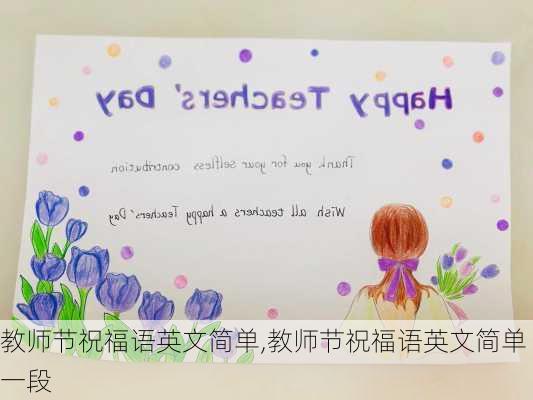 Happy Teachers' Day
Thank you for your selfless contribution
Wish all teachers a happy Teachers' Day
教师节祝福语英文简单,教师节祝福语英文简单
一段